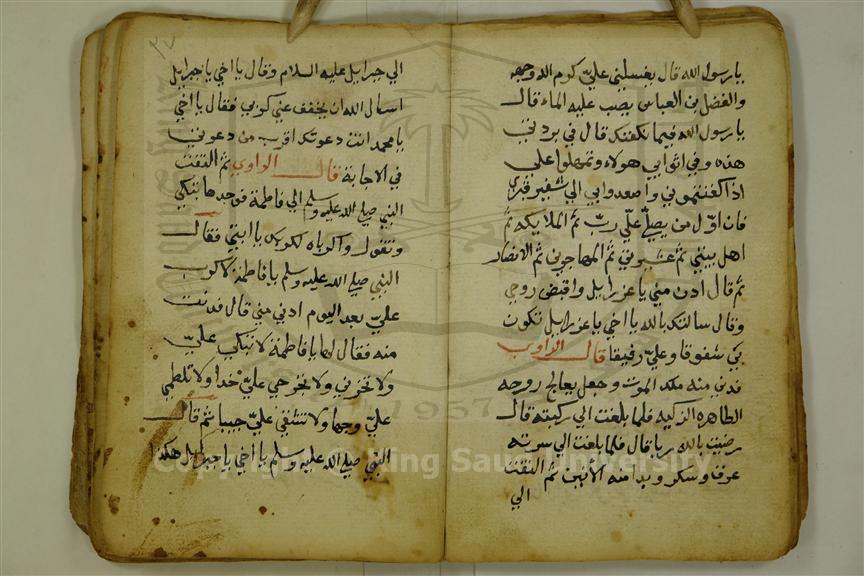 يا رسول الله قال يغسلني علي كرم الله وجهه
والفضل بن العباس يصب عليه الماء قال
يا رسول الله فيما نكفنك قال في بردتي
هذه وفي اثوابي هولاء وتمهلوا علي
اذا كفنتموني واصعدوا بي الي شفير قبري
فان اول من يصلي علي ربي ثم الملايكه ثم
اهل بيتي ثم عشيرتي ثم المهاجرين ثم الانصار
ثم قال ادن مني يا عزرايل واقبض روحي
وقال سالتك بالله يا اخي يا عزرايل تكون
بي شفوقا وعلي رفيقا قال الراوي
فدني منه ملك الموت وجعل يعالج روحه
الطاهره الزكيه فلما بلغت الي ركبته قال
رضيت بالله ربا قال فلما بلغت الي سرته
عرق وسكر وبدا منه الأنين ثم التفت
الي
٢٧
الي جبرايل عليه السلام وقال يا اخي يا جبرايل
اسال الله ان يخفف عني كربي فقال يا اخي
يا محمد انت دعوتك اقرب من دعوتي
في الاجابة قال الراوي ثم التفت
النبي صلي الله عليه وسلم الي فاطمة فوجدها تبكي
وتقول واكرباه لكربك يا ابتي فقال
النبي صلي الله عليه وسلم يا فاطمة لا كرب
علي بعد اليوم ادني مني قال فدنت
منه فقال لها يا فاطمة لا تبكي علي
ولا تحزني ولا تخرجي علي خدا ولا تلطمي
علي وجها ولا تشقي علي جيبا ثم قال
النبي صلي الله عليه وسلم يا اخي يا جبرايل هكذا
1957
Copyright © King Saud University